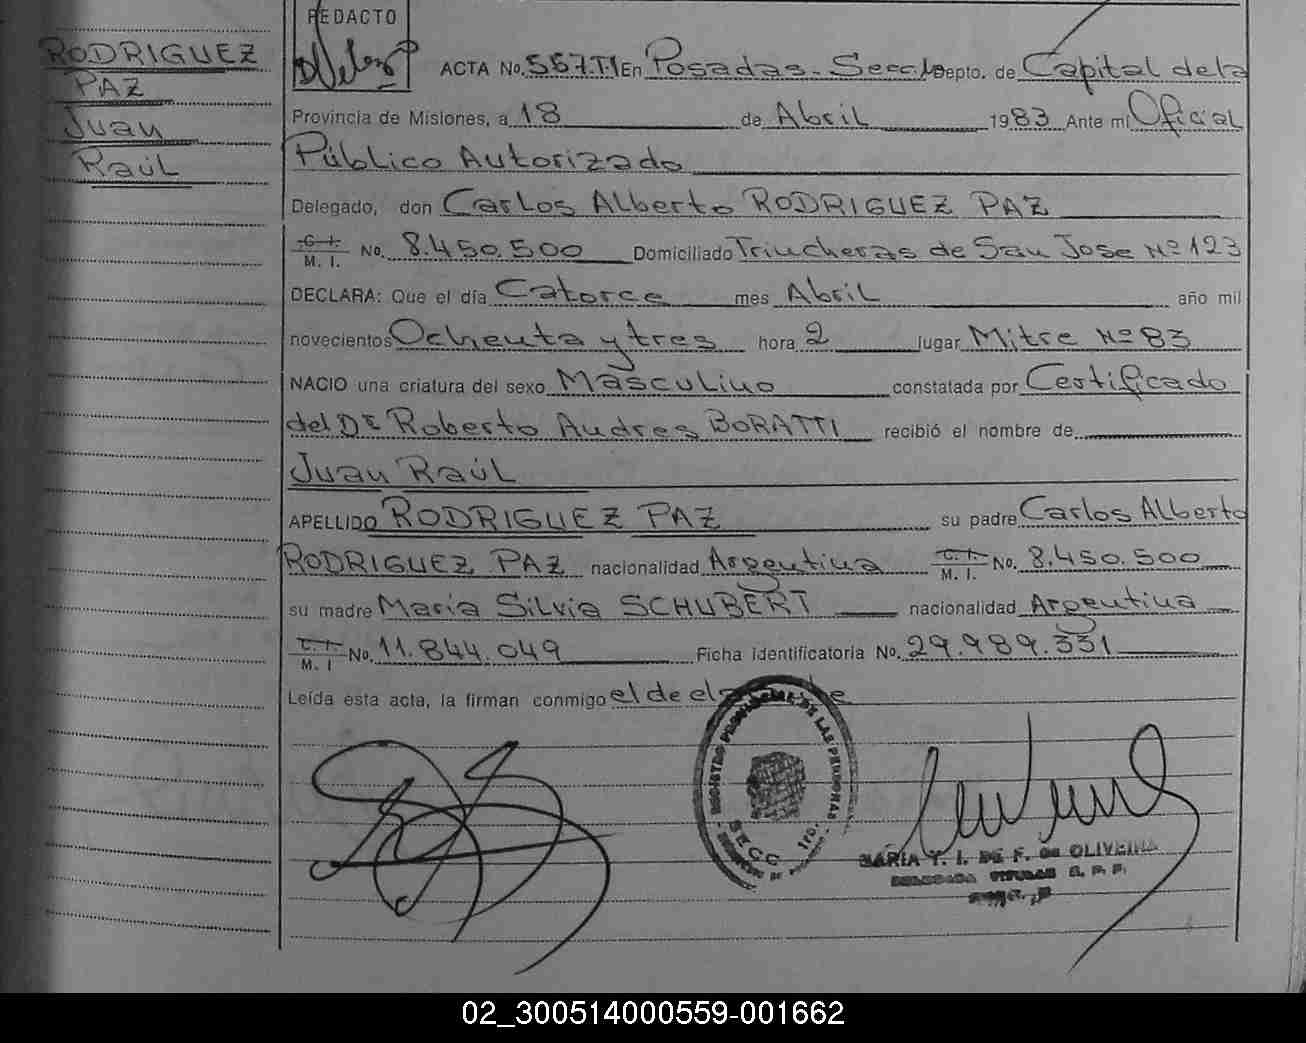 RODRIGUEZ
PAZ
Juan
Raúl
REDACTO
ACTA No. 557.T.I En Posadas - Secc. 1º Depto. de Capital de la
Provincia de Misiones, a 18 de Abril 1983 Ante mí Oficial
Público Autorizado
Delegado, don Carlos Alberto RODRIGUEZ PAZ
C. I. M. I. No. 8.450.500 Domiciliado Trincheras de San Jose Nº 123
DECLARA: Que el día Catorce mes Abril año mil
novecientos Ochenta y tres hora 2 lugar Mitre Nº 83
NACIO una criatura del sexo Masculino constatada por Certificado
del Dr Roberto Andres BORATTI recibió el nombre de
Juan Raúl
APELLIDO RODRIGUEZ PAZ su padre Carlos Alberto
RODRIGUEZ PAZ nacionalidad Argentina C. I. M. I. No. 8.450.500
su madre Maria Silvia SCHUBERT nacionalidad Argentina
C. I. M. I No. 11.844.049 Ficha identificatoria No. 29.989.331
Leída esta acta, la firman conmigo el de
REGISTRO PROVINCIAL DE LAS PERSONAS
SECC 1ro.
MARIA T. I. DE F. DE OLIVEIRA
DELEGADA TITULAR R. P. P.
02_300514000559-001662